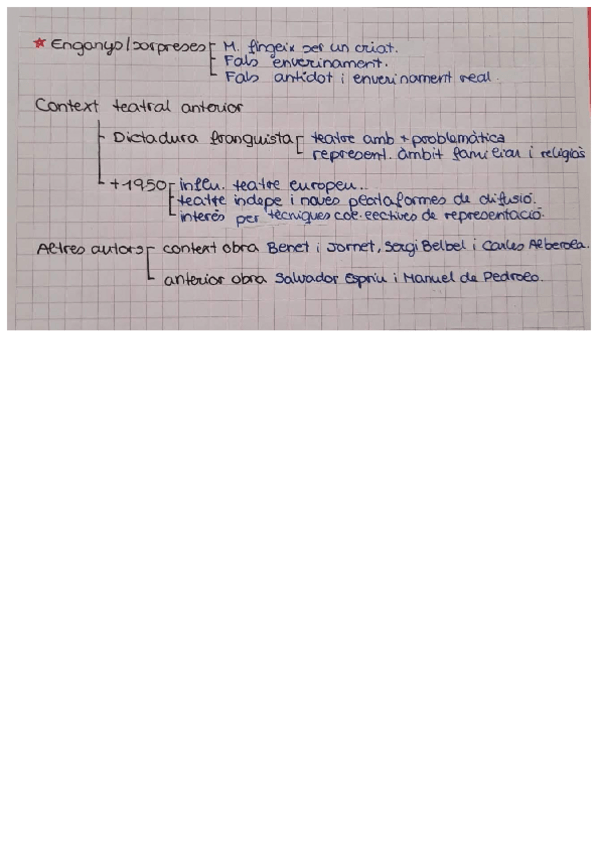 ☆ Enganys/sorpreses M. fingeix ser un criat.
Fals enverinament.
Fals antídot i enverinament real.
Context teatral anterior
Dictadura franquista teatre amb + problemàtica
represent. àmbit familiar i religiós
+ 1950 influ. teatre europeu..
teatre indepe i noves plataformes de difusió.
interès per tècniques col·lectives de representació.
Altres autors context obra Benet i Jornet, Sergi Belbel i Carles Alberola.
anterior obra Salvador Espriu i Manuel de Pedrolo.